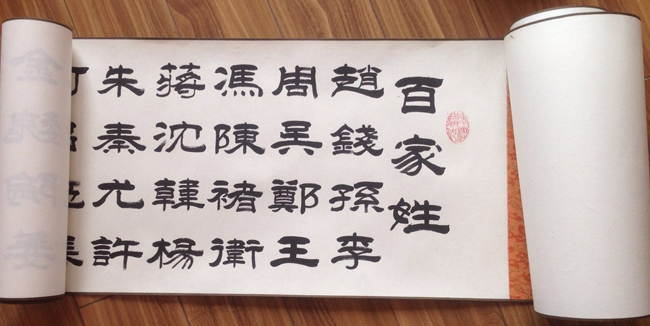 百家姓
趙錢孫李
周吳鄭王
馮陳褚衛
蔣沈韓楊
朱秦尤許